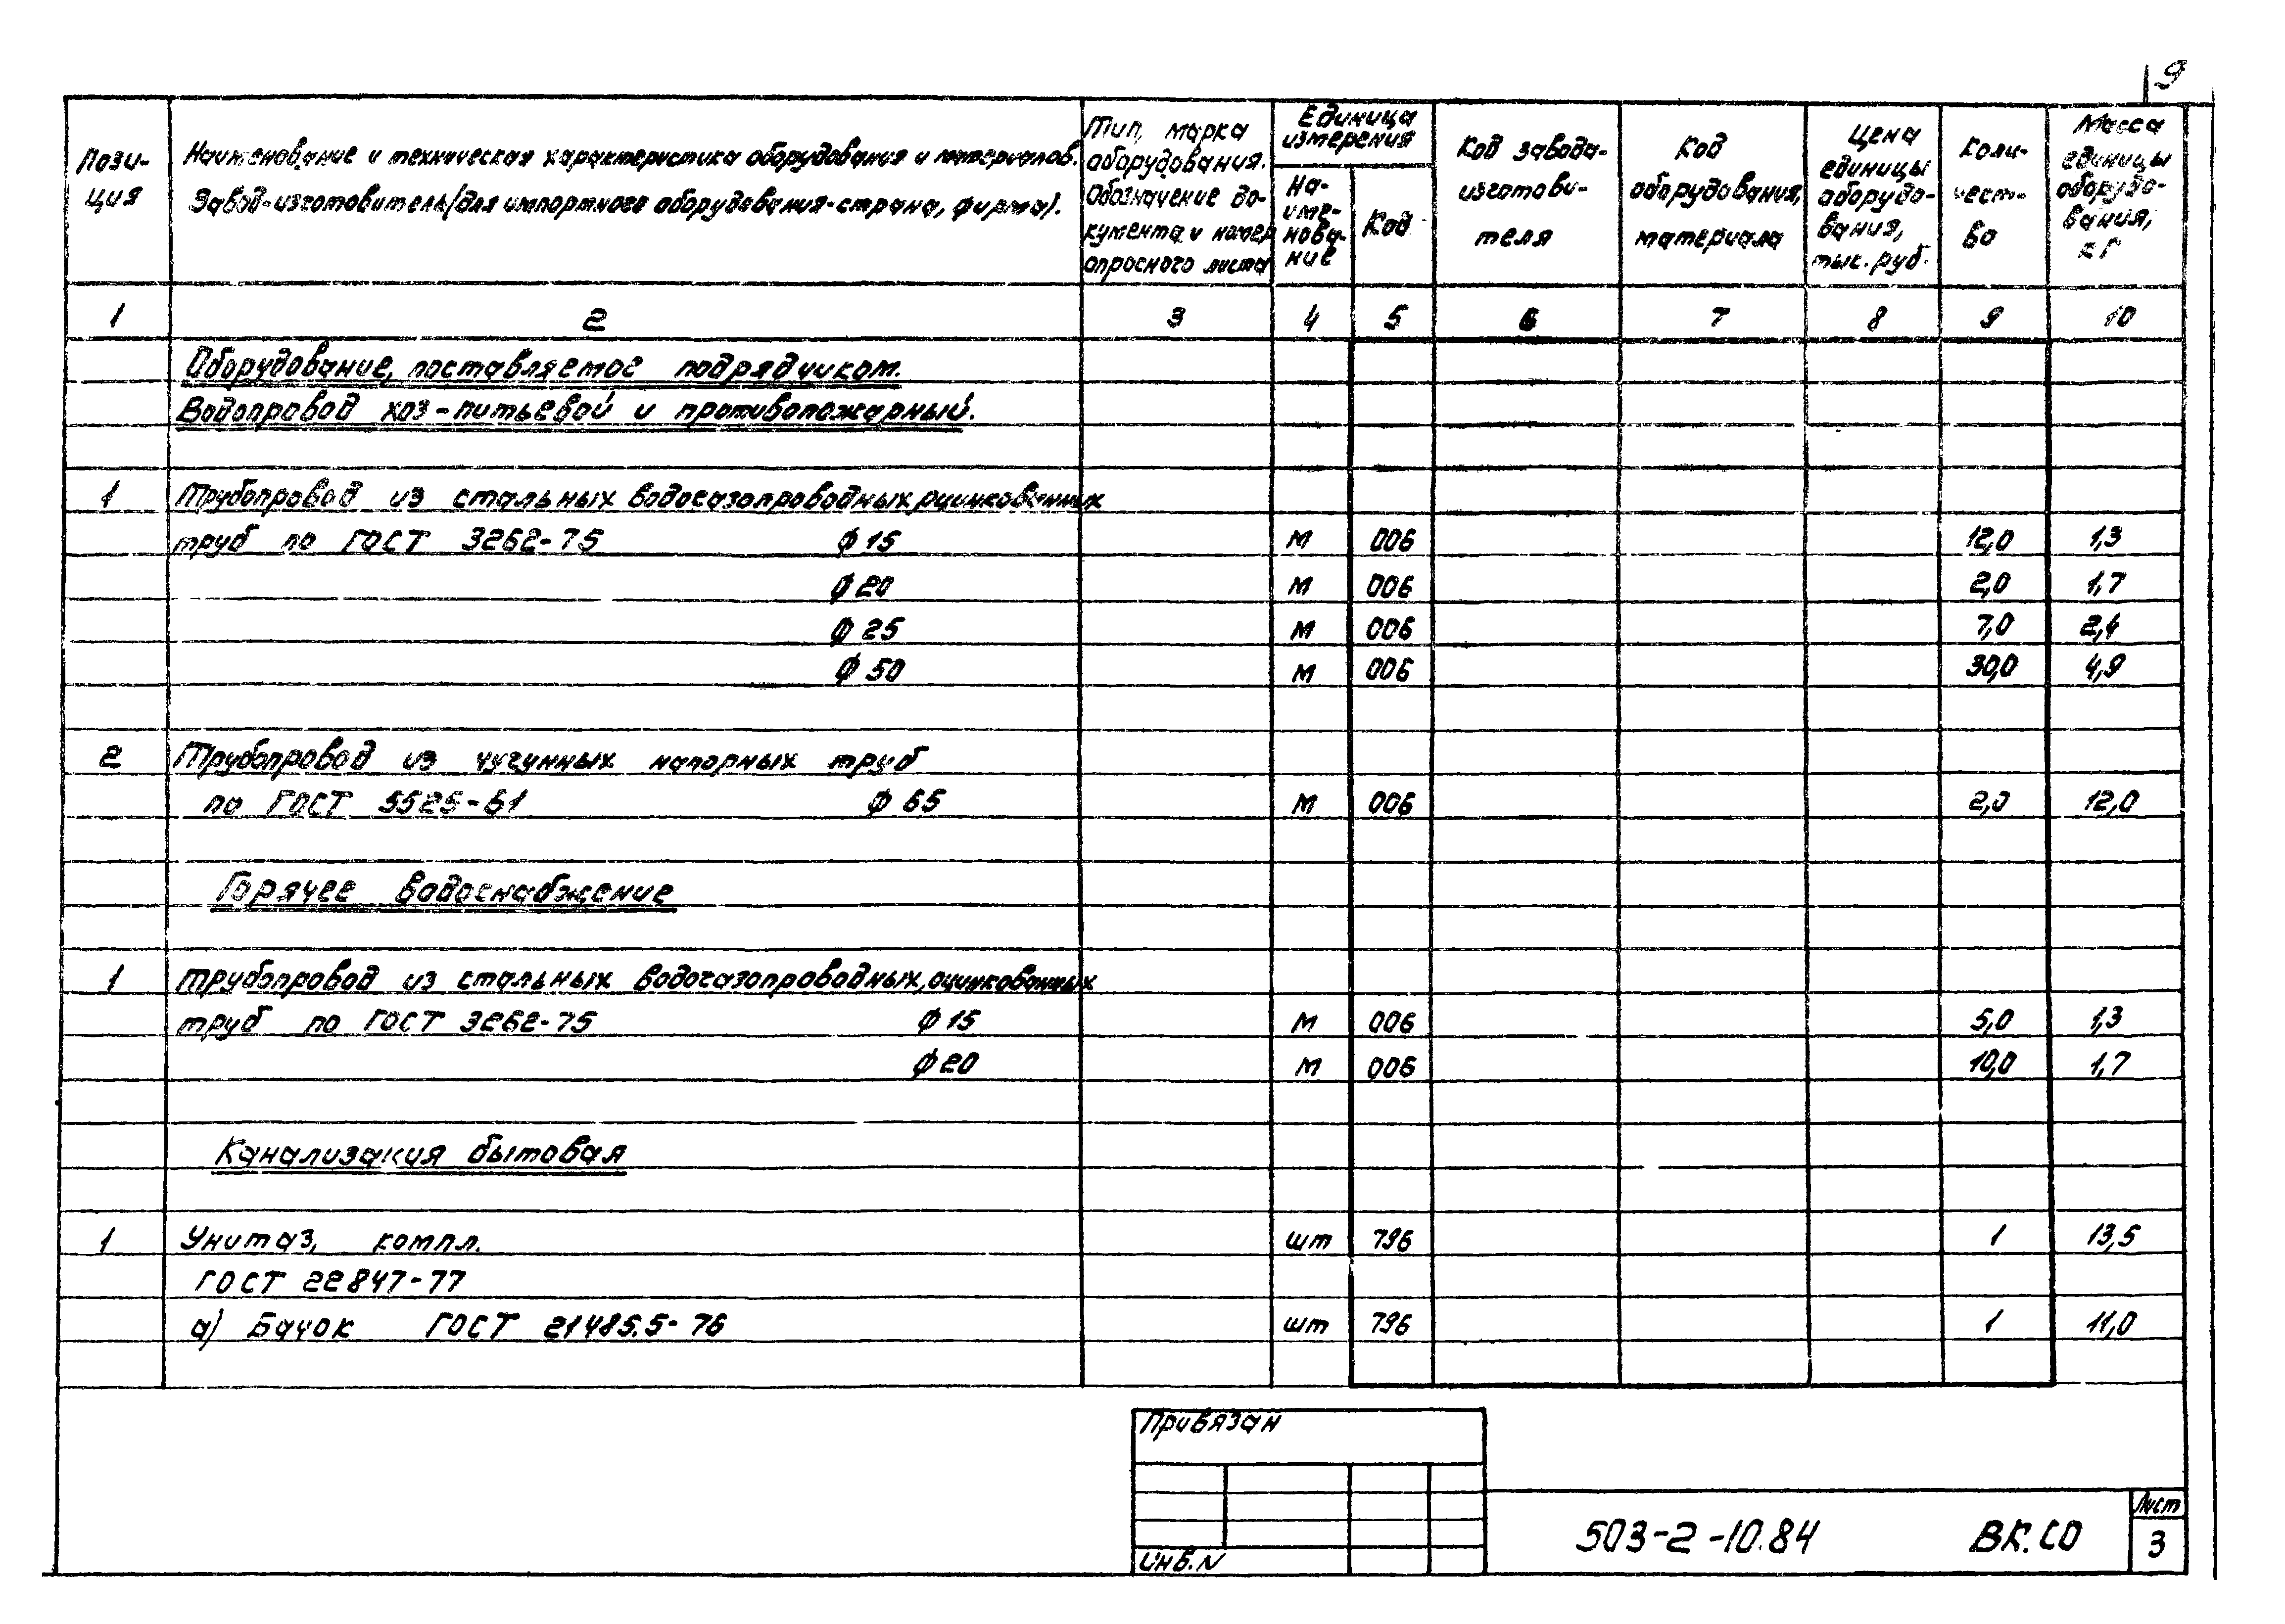 9
Пози-
ция
Наименование и техническая характеристика оборудования и материалов.
Завод-изготовитель(для импортного оборудования-страна, фирма).
Тип, марка
оборудования.
Обозначение до-
кумента и номер
опросного листа
Единица
измерения
На-
име-
нова-
ние
Код
Код завода-
изготови-
теля
Код
оборудования,
материала
Цена
единицы
оборудо-
вания,
тыс. руб.
Коли-
чест-
во
Масса
единицы
оборудо-
вания,
кг
1 2 3 4 5 6 7 8 9 10
Оборудование, поставляемое подрядчиком.
Водопровод хоз-питьевой и противопожарный.
1 Трубопровод из стальных водогазопроводных, оцинкованных
труб по ГОСТ 3262-75 ф 15 м 006 12,0 1,3
ф 20 м 006 2,0 1,7
ф 25 м 006 7,0 2,4
ф 50 м 006 30,0 4,9
2 Трубопровод из чугунных напорных труб
по ГОСТ 5525-61 ф 65 м 006 2,0 12,0
Горячее водоснабжение
1 Трубопровод из стальных водогазопроводных, оцинкованных
труб по ГОСТ 3262-75 ф 15 м 006 5,0 1,3
ф 20 м 006 10,0 1,7
Канализакия бытовая
1 Унитаз, компл. шт 796 1 13,5
ГОСТ 22847-77
а) Бачок ГОСТ 21485.5-76 шт 796 1 11,0
Привязан
Инв.N
503-2-10.84 ВК.СО
Лист
3